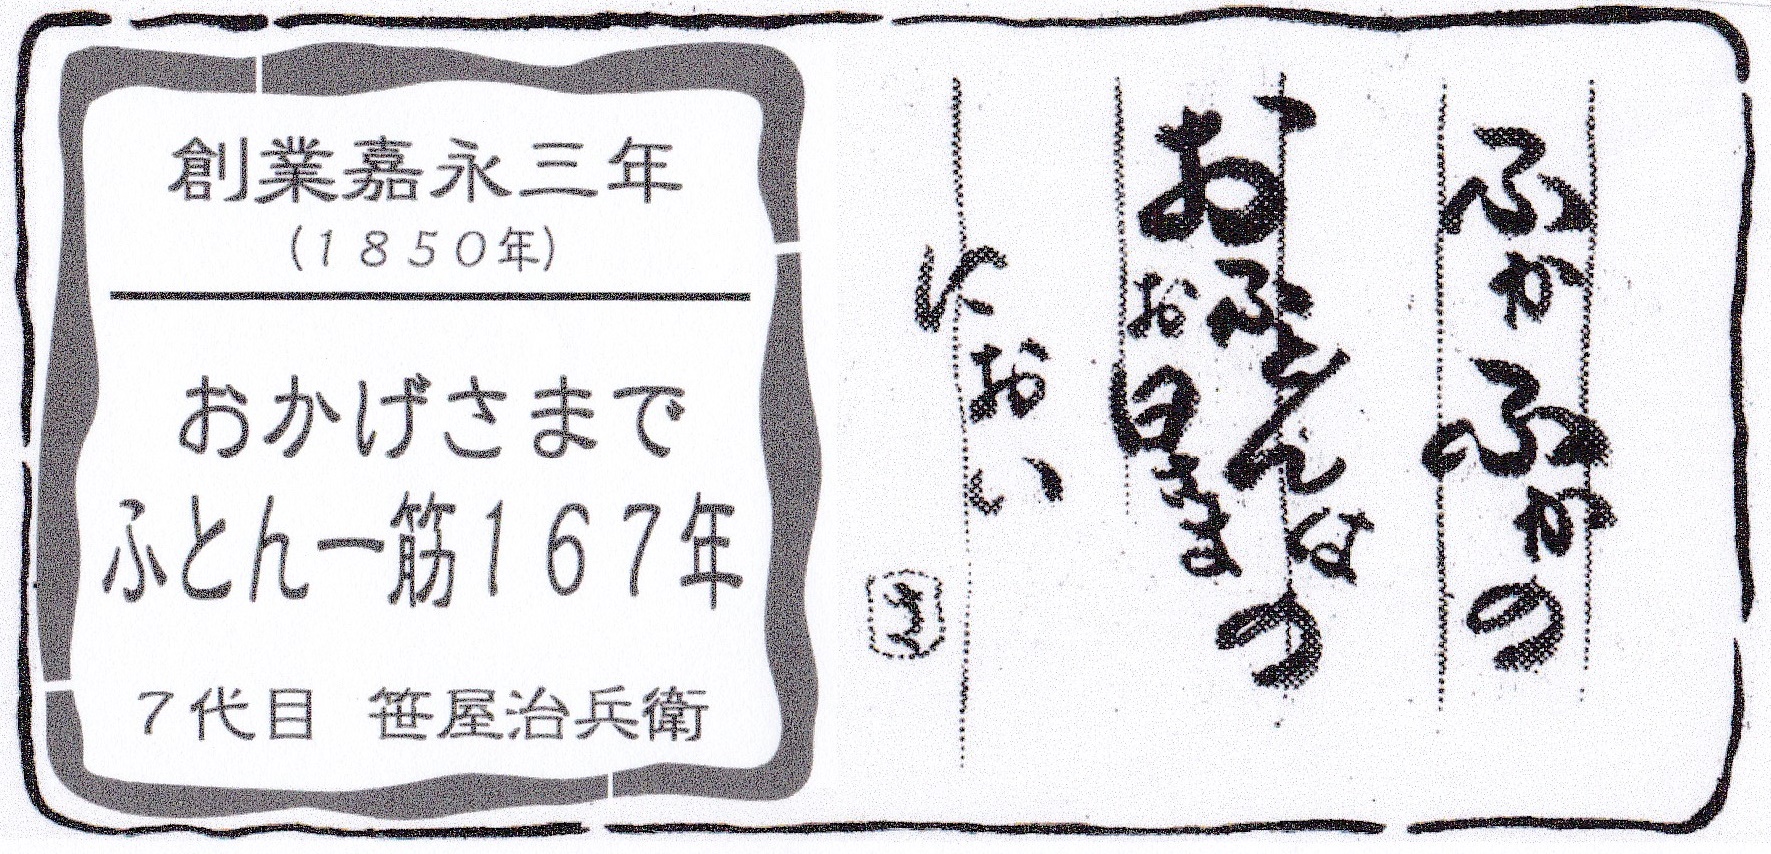 ふかふかの
おふとんは
お日さまの
におい
創業嘉永三年
(1850年)
おかげさまで
ふとん一筋167年
7代目 笹屋治兵衛